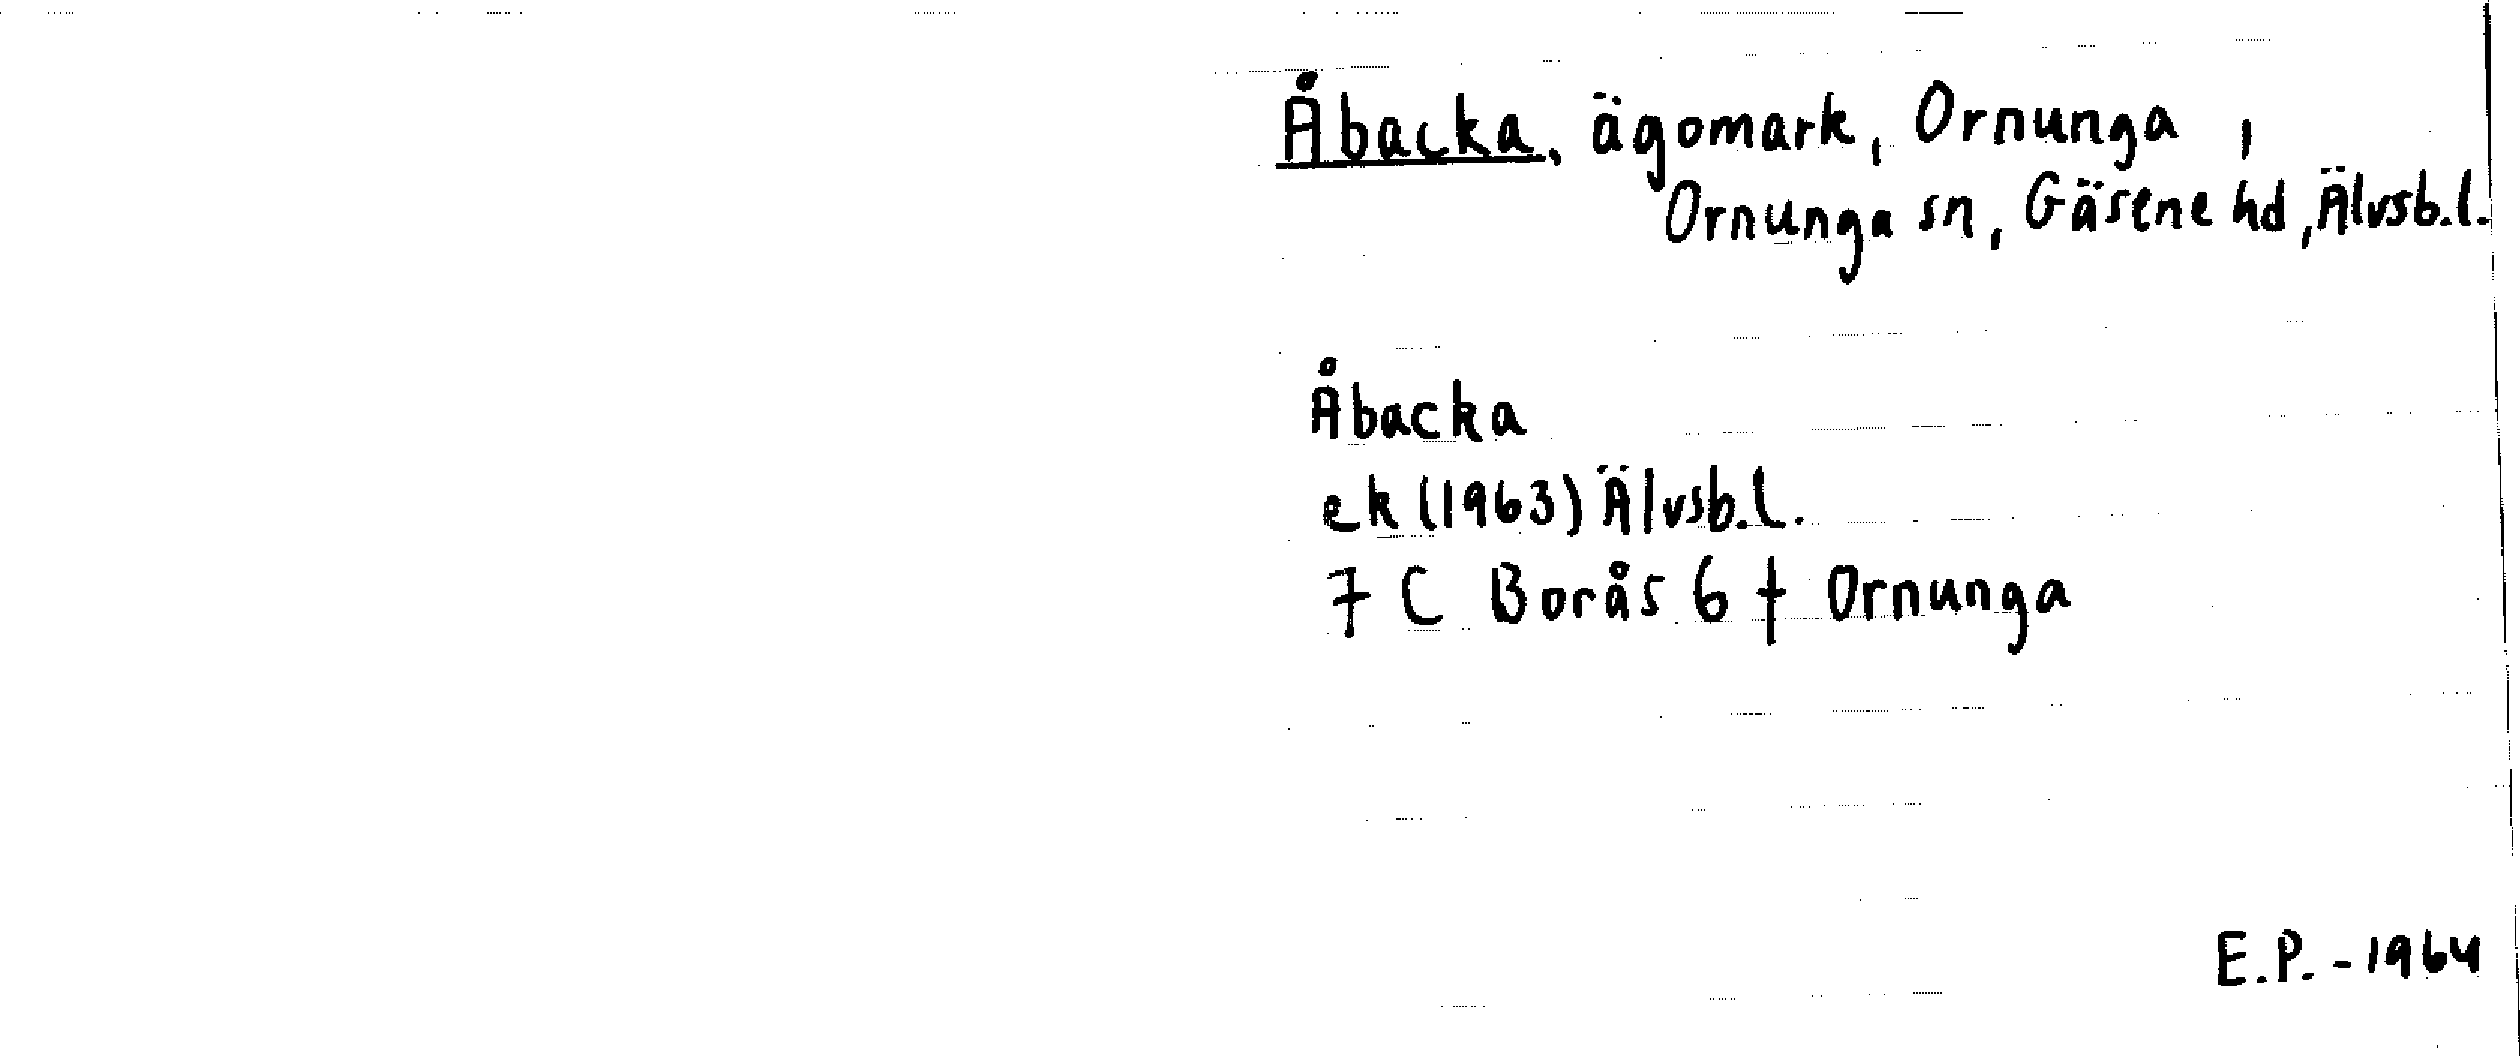 Åbacka, ägomark, Ornunga,
Ornunga sn, Gäsene hd, Älvsb.l.
Åbacka
ek (1963) Älvsb.l.
7 C Borås 6 f Ornunga
E.P. - 1964